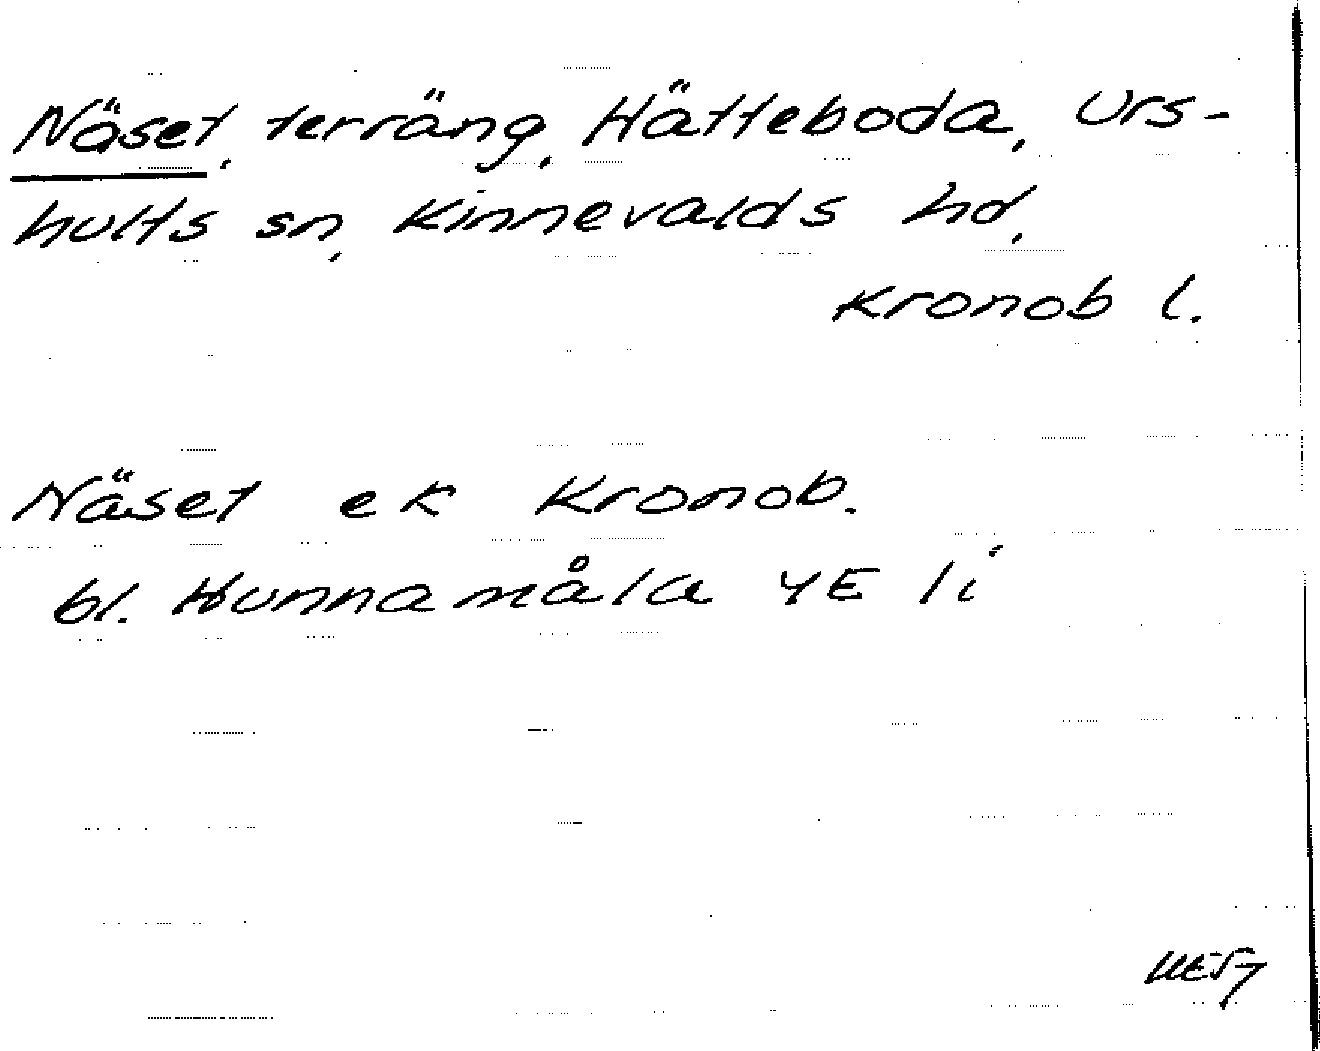 Näset, terräng, Hätteboda, Urs-
hults sn, Kinnevalds hd,
Kronob l.
Näset ek Kronob.
bl. Hunnamåla 4E 1i